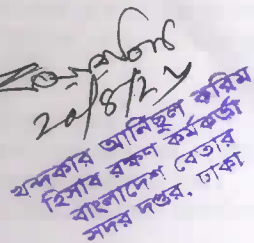 ২০/৪/২১
খন্দকার আনিছুল করিম
হিসাব রক্ষণ কর্মকর্তা
বাংলাদেশ বেতার
সদর দপ্তর, ঢাকা